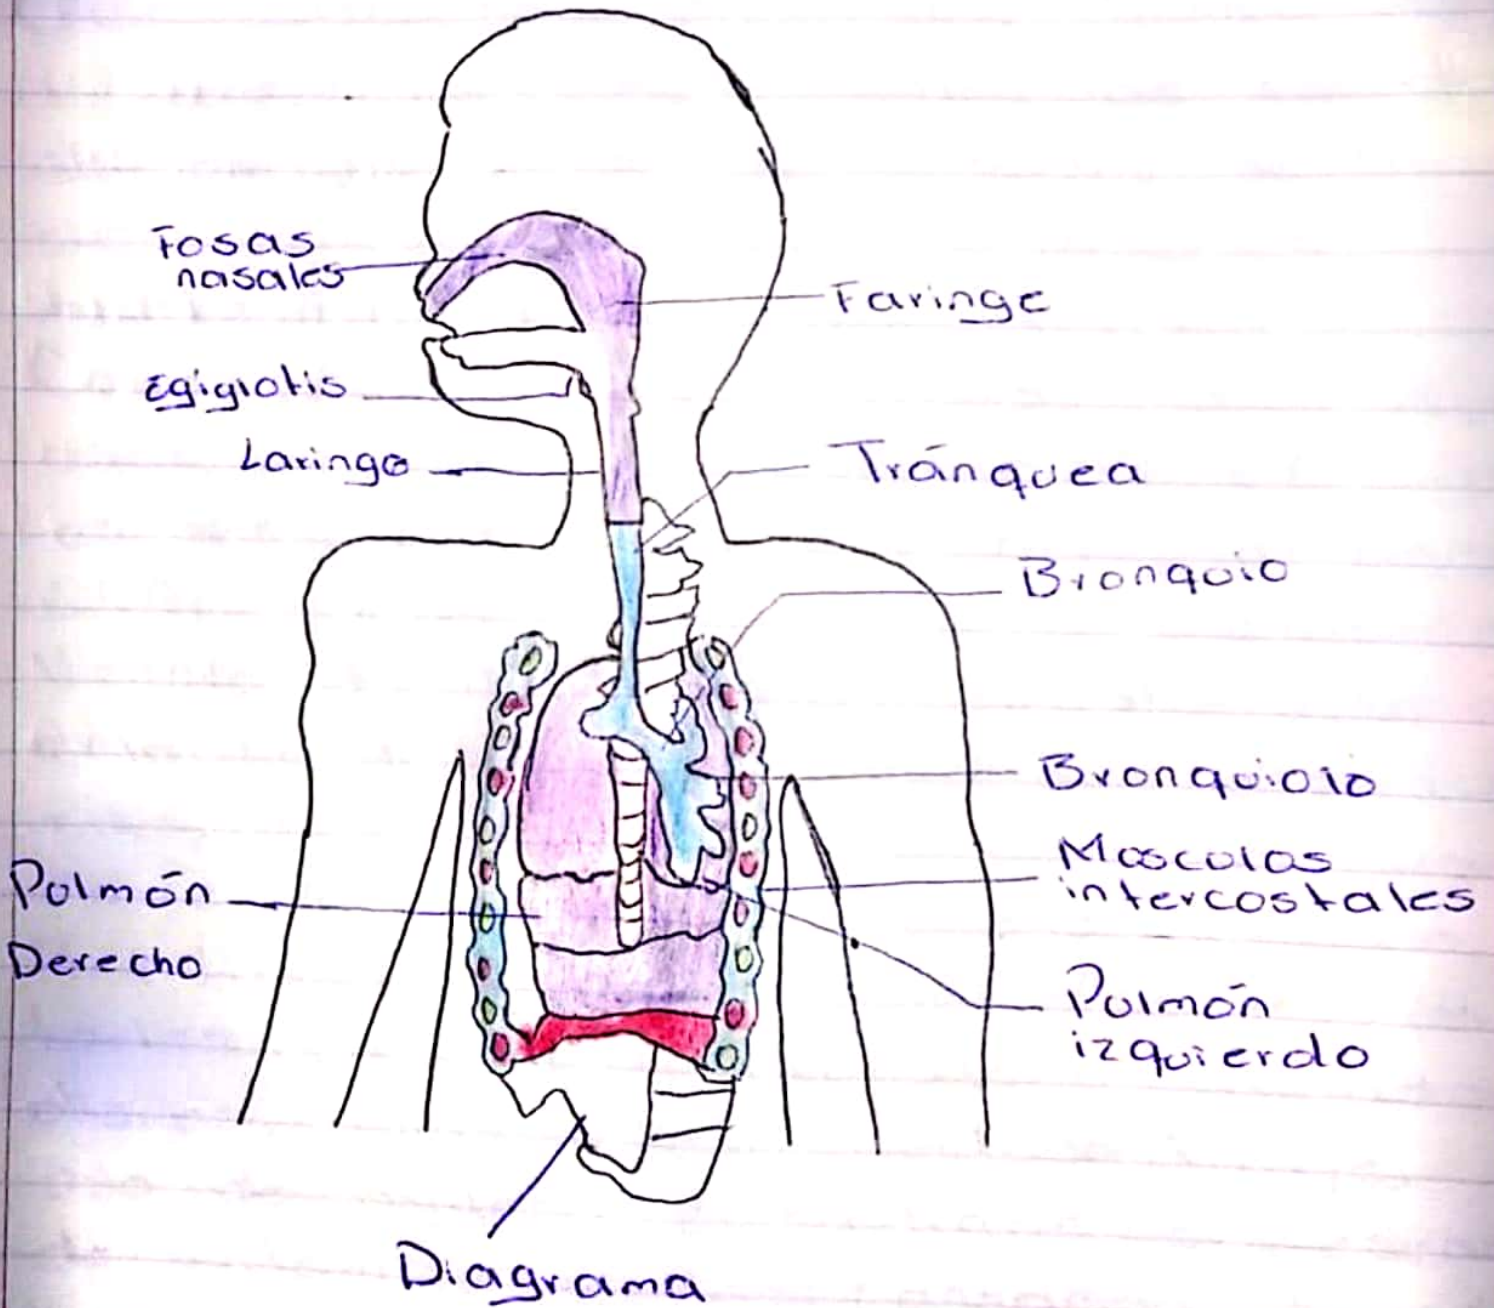 Fosas
nasales
Faringe
Egiglotis
Laringe
Tránquea
Bronquio
Bronquiolo
Moscolos
intercostales
Polmón
Derecho
Pulmón
izquierdo
Diagrama